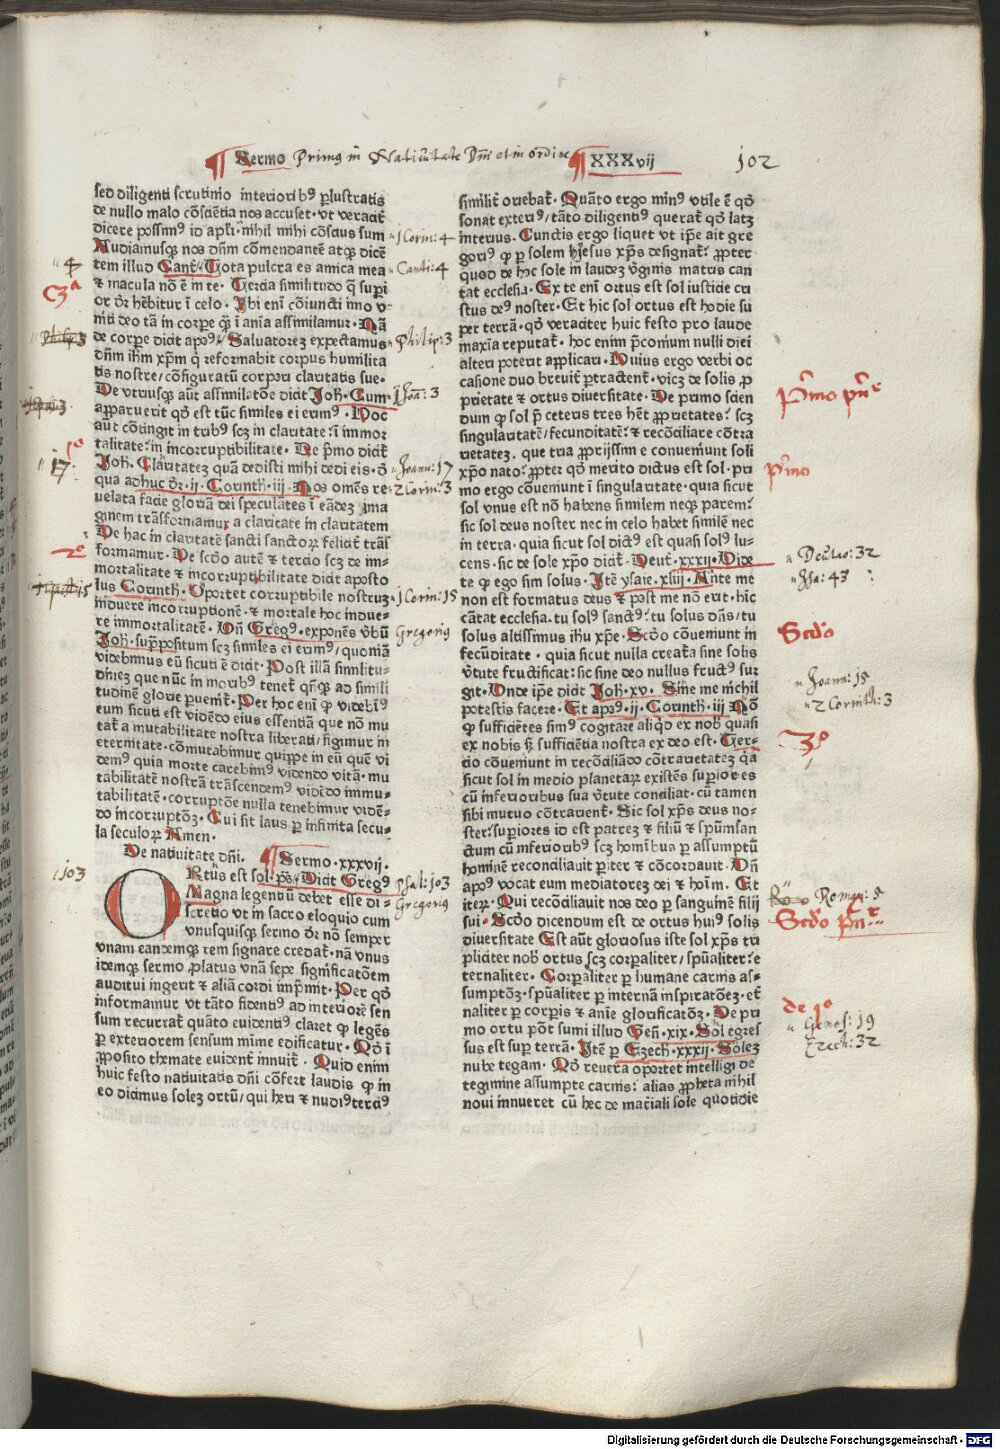 Sermo Primus in Natiuitate Dni et in ordine XXXvij 102
sed diligenti scrutinio interiorib⁹ ꝑlustratis
de nullo malo cõsciẽtia nos accuset. vt veracit̃
dicere possim⁹ id apłi. nihil mihi cõscius sum
Audiamusqꝫ nos dñm cõmendantẽ atqꝫ dicẽ
tem illud Cant̃. Tota pulcra es amica mea
⁊ macula nõ ẽ in te. Tercia similitudo q̃ supi
or dr̃ hẽbitur ĩ celo. Ibi enĩ cõiuncti imo v-
niti deo tã in corpe qꝫ ĩ aĩa assimilamur. Nã
de corpe dicit apo⁹. Saluatorẽ expectamus
dñm ihm xp̃m q̇ reformabit corpus humilita
tis nostre/cõfiguratũ corpori claritatis sue.
De vtrusqꝫ aũt assimilatõe dicit Joh̃. Cum
apparuerit qõ est tũc similes ei erim⁹. Hoc
aũt cõtingit in trib⁹ scꝫ in claritate ĩ immor
talitate ĩ in incorruptibilitate. De p̃mo dicit̃
Joh̃. Claritatez quã dedisti mihi dedi eis. õ
qua adhuc dr̃. ij. Corinth̃. iij. Nos omẽs re
uelata facie gloriã dei speculãtes ĩ eãdeꝫ ima
ginem trãsformamur a claritate in claritatem
De hac in claritatẽ sancti sanctoꝝ felicit̃ trãs
formamur. De scđo autẽ ⁊ tercio scꝫ de im-
mortalitate ⁊ incorruptibilitate dicit aposto
lus Corinth̃. Oportet corruptibile nostrum
induere incorruptionẽ. ⁊ mortale hoc indue-
re immortalitatẽ. Vñ Greg⁹. exponẽs vbũ
Joh̃. suppositum scꝫ similes ei erim⁹/quoniã
videbimus eũ sicuti ẽ dicit. Post illã similitu-
dinez que nũc in morib⁹ tenet̃ qñqꝫ ad simili
tudinẽ glorie ꝑuenit̃. Per hoc enĩ ꝙ videbĩ⁹
eum sicuti est vidẽdo eius essentiã que nõ mu
tat̃ a mutabilitate nostra liberati/figimur in
eternitate. cõmutabimur quippe in eũ quẽ vi
dem⁹ quia morte carebim⁹ videndo vitã. mu
tabilitatẽ nostrã trãscendem⁹ vidẽdo immu-
tabilitatẽ. corruptõe nulla tenebimur vidẽ-
do incorruptõꝫ. Cui sit laus ꝑ infinita secu-
la seculoꝝ Amen.
De natiuitate dñi. Sermo. xxxvij.
ORtus est sol. ps. Dicit Greg⁹
Magna legentiũ debet esse di-
scretio vt in sacro eloquio cum
vnusquisqꝫ sermo dr̃ nõ semper
vnam eandemqꝫ rem signare credat̃. nã vnus
idemqꝫ sermo ꝓlatus vnã sepe significatõem
auditui ingerit ⁊ aliã cordi imp̃mit. Per qõ
informamur vt tãto fidenti⁹ ad interiorẽ sen
sum recurrat̃ quãto euidenti⁹ claret ꝙ legẽs
ꝑ exteriorem sensum mime edificatur. Qõ ĩ
ꝓposito themate euident̃ innuit̃. Quid enim
huic festo natiuitatis dñi cõfert laudis ꝙ in
eo dicimus solez ortũ/qui heri ⁊ nudi⁹terci⁹
similit̃ oriebat̃. Quãto ergo min⁹ vtile ẽ qõ
sonat exteri⁹/tãto diligenti⁹ querat̃ qõ latꝫ
interius. Cunctis ergo liquet vt ip̃e ait gre
gori⁹ ꝙ ꝑ solem hiesus xp̃s designat̃. ꝓpter
quod de hoc sole in laudez v̾ginis matris can
tat ecclesia. Ex te enĩ ortus est sol iusticie cri
stus de⁹ noster. Et hic sol ortus est hodie su
per terrã. qõ veraciter huic festo pro laude
maxĩa reputat̃. hoc enim p̃conium nulli diei
alteri poterit applicari. Huius ergo verbi oc
casione duo breuit̃ ꝑtractent̃. vicꝫ de solis ꝓ
prietate ⁊ ortus diuersitate. De primo scien
dum ꝙ sol p̃ ceteris tres hẽt ꝓprietates. scꝫ
singularitatẽ/fecunditatẽ ⁊ recõciliare cõtra
rietatez. que tria ꝓprijssime conueniunt soli
xp̃o nato. ꝓpter qõ merito dictus est sol. pri
mo ergo cõueniunt ĩ singularitate. quia sicut
sol vnus est nõ habens similem neqꝫ parem.
sic sol deus noster nec in celo habet similẽ nec
in terra. quia sicut sol dicit̃ est quasi sol⁹ lu-
cens. sic de sole xp̃o dicit̃. Deut̃. xxxij. Vide
te ꝙ ego sim solus. Itẽ ysaie. xliij. Ante me
non est formatus deus ⁊ post me nõ erit. hic
cãtat ecclesia. tu sol⁹ sanct⁹. tu solus dñs/tu
solus altissimus ihũ xp̃e. Scđo cõueniunt in
fecũditate. quia sicut nulla creata sine solis
v̾tute fructificat. sic sine deo nullus fruct⁹ sur
git. Unde ip̃e dicit Joh̃. xv. Sine me nichil
potestis facere. Et apo⁹. ij. Corinth̃. iij. Nõ
ꝙ sufficiẽtes sim⁹ cogitare aliqͥd ex nob̾ quasi
ex nobis sꝫ sufficiẽtia nostra ex deo est. Ter-
cio cõueniunt in recõciliãdo cõtrarietateꝫ q̃a
sicut sol in medio planetaꝝ existẽs supiores
cũ inferioribus sua v̾tute conciliat. cũ tamen
sibi mutuo cõtrarient̃. Sic sol xp̃s deus no-
ster. supiores id est patreꝫ ⁊ filiũ ⁊ spũmsan
ctum cũ inferiorib⁹ scꝫ homĩbus ꝑ assumptũ
hominẽ reconciliauit pariter ⁊ cõcordauit. Vñ
apo⁹ vocat eum mediatoreꝫ dei ⁊ hoĩm. Et
iteꝝ. Qui recõciliauit nos deo ꝑ sanguinẽ filij
sui. Scđo dicendum est de ortus hui⁹ solis
diuersitate Est aũt gloriosus iste sol xp̃s tri
pliciter nob̾ ortus scꝫ corpaliter/spũaliter/e
ternaliter. Corpaliter ꝑ humane carnis as-
sumptõꝫ. spũaliter ꝑ internã inspiratõez. et̾
naliter ꝑ corpis ⁊ anie glorificatõꝫ. De pri
mo ortu põt sumi illud Geñ. xix. Sol egres
sus est sup terrã. Itẽ ꝑ Ezech̃. xxxij. Solez
nube tegam. Qõ reuera oportet intelligi de
tegimine assumpte carnis. alias ꝓpheta nihil
noui innueret cũ hec de mat̾iali sole quotidie
1 Corin: 4
Canti: 4
Philip: 3
Joã: 3
Joann: 17
2 Corin: 3
1 Corin: 15
Gregorius
Psal: 103
Gregorius
4
C3ᵃ
17
1º
2º
103
Pͥmo pñᵉ
pͥmo
Deutro: 32
Isa: 43
Scđo
Joann: 15
2 Corinth: 3
3º
Roman: 5
Scđo pñʳ
de 1º
Genes: 19
Ezech: 32
Digitalisierung gefördert durch die Deutsche Forschungsgemeinschaft - DFG